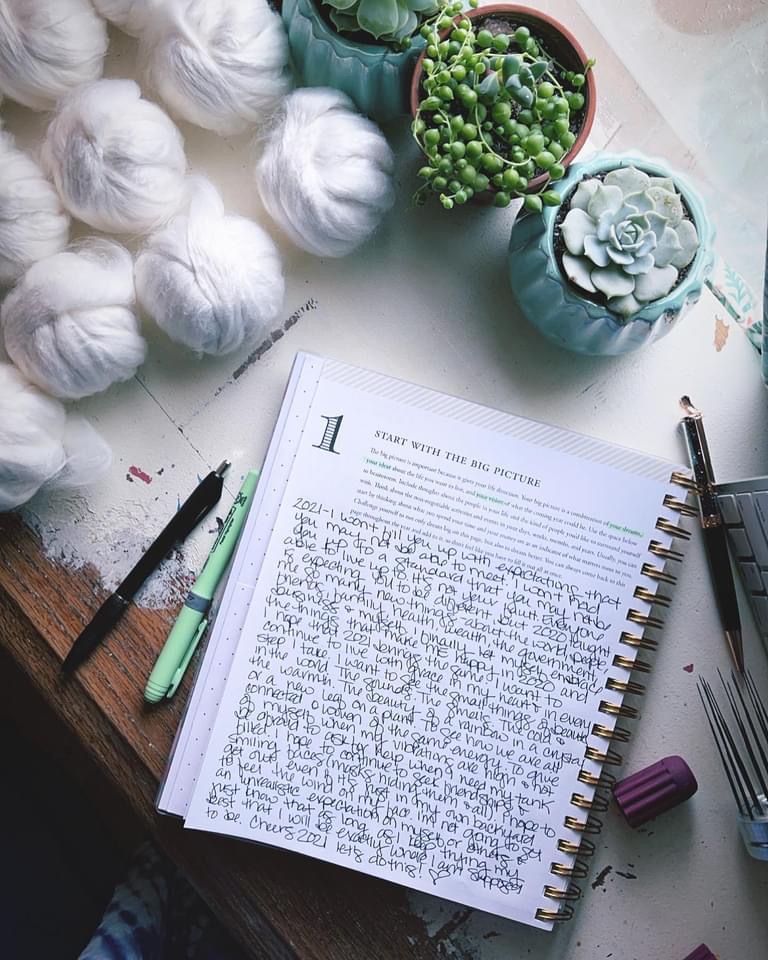 1
START WITH THE BIG PICTURE
The big picture is important because it gives your life direction. Your big picture is a combination of your dreams,
your ideas about the life you want to live, and your vision of what the coming year could be. Use the space below
to brainstorm. Include thoughts about the people in your life and the kind of people you'd like to surround yourself
with. Think about the activities and events in your days, weeks, months, and years. Usually, you can
start by thinking about what you spend your time and your money on as an indicator of what matters most to you.
Challenge yourself to not only dream big on this page, but also to dream You can always come back to this
page throughout the year to add to it, so don't feel like you have to fill it out all at once.
2021-I won't fill you up with expectations that
you may not be able to meet. I won't hold
you up to a standard that you may not be
able to live up to. It's not you. I wish everyone
is expecting you to be different but 2020 taught
me so many new things about the world, people
friends, family, health, wealth, the government
business & myself. I finally let myself embrace
the things that make me happy in 2020 and
I hope that 2021 brings the same. I want to
continue to live with grace in my heart in every
step I take. I want to see the small things of beauty
in the world. The sounds. The smells. The cold &
the warmth. The beauty of a rainbow in a crystal
or a new leaf on a plant. To see how we are all
connected & woven of the same energy. To give
of myself when my vibrations are high & not
be afraid to ask for help when I need my tank
filled. I hope to continue to see friendships &
smiling faces (masks hiding them & all). I hope to
get out even if it's just in my own backyard
to feel the wind on my face. I'm not going to set
an unrealistic expectation on myself or others &
just know that as long as I keep trying my
best that I will be exactly what I am supposed
to be. Cheers 2021 let's do this!